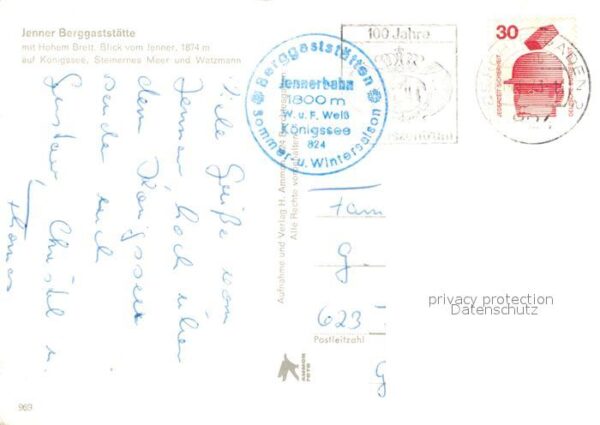 Jenner Berggaststätte
mit Hohem Brett. Blick vom Jenner, 1874 m
auf Königssee, Steinernes Meer und Watzmann
Viele Grüße vom
Jenner, hoch über
dem Königssee
sendet euch
Gustav, Christel u.
Thomas
Berggaststätten
Jennerbahn
1800 m
W. u. F. Weiß
Königssee
824
Sommer- u. Wintersaison
100 Jahre
30
JEDERZEIT SICHERHEIT
Aufnahme und Verlag H. Ammon
Alle Rechte vorbehalten
Fam
G
623
Postleitzahl
G
privacy protection
Datenschutz
AMMON
FOTO
969